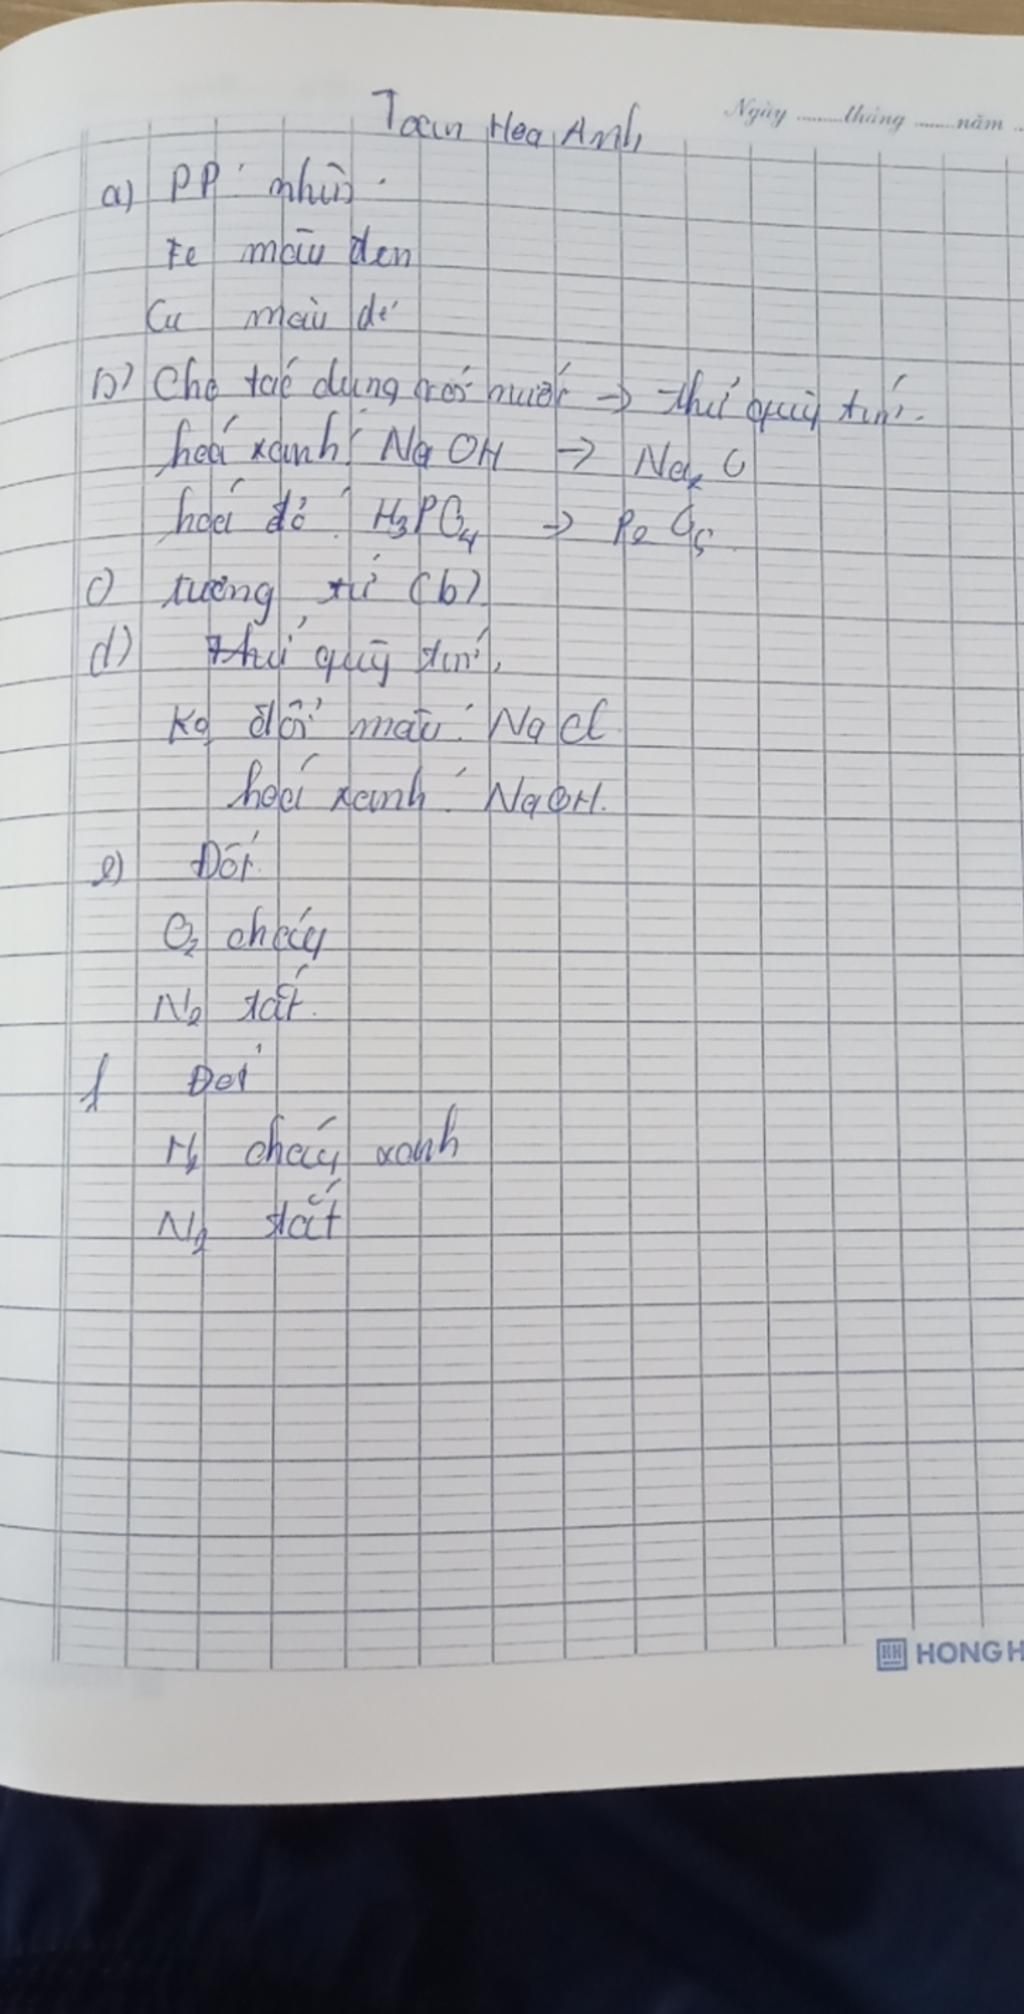 Toán Hoá Anh
Ngày ........tháng ........năm ..
a) PP: nhìn.
Fe màu đen
Cu màu đỏ
b) Cho tác dụng với nước → thử quỳ tím.
hoá xanh: NaOH → Na2O
hoá đỏ: H3PO4 → P2O5
c) tương tự (b)
d) thử quỳ tím.
Ko đổi màu: NaCl
hoá xanh: NaOH.
e) Đốt.
O2 cháy
N2 tắt.
f Đốt
H2 cháy xanh
N2 tắt
HH HONG H